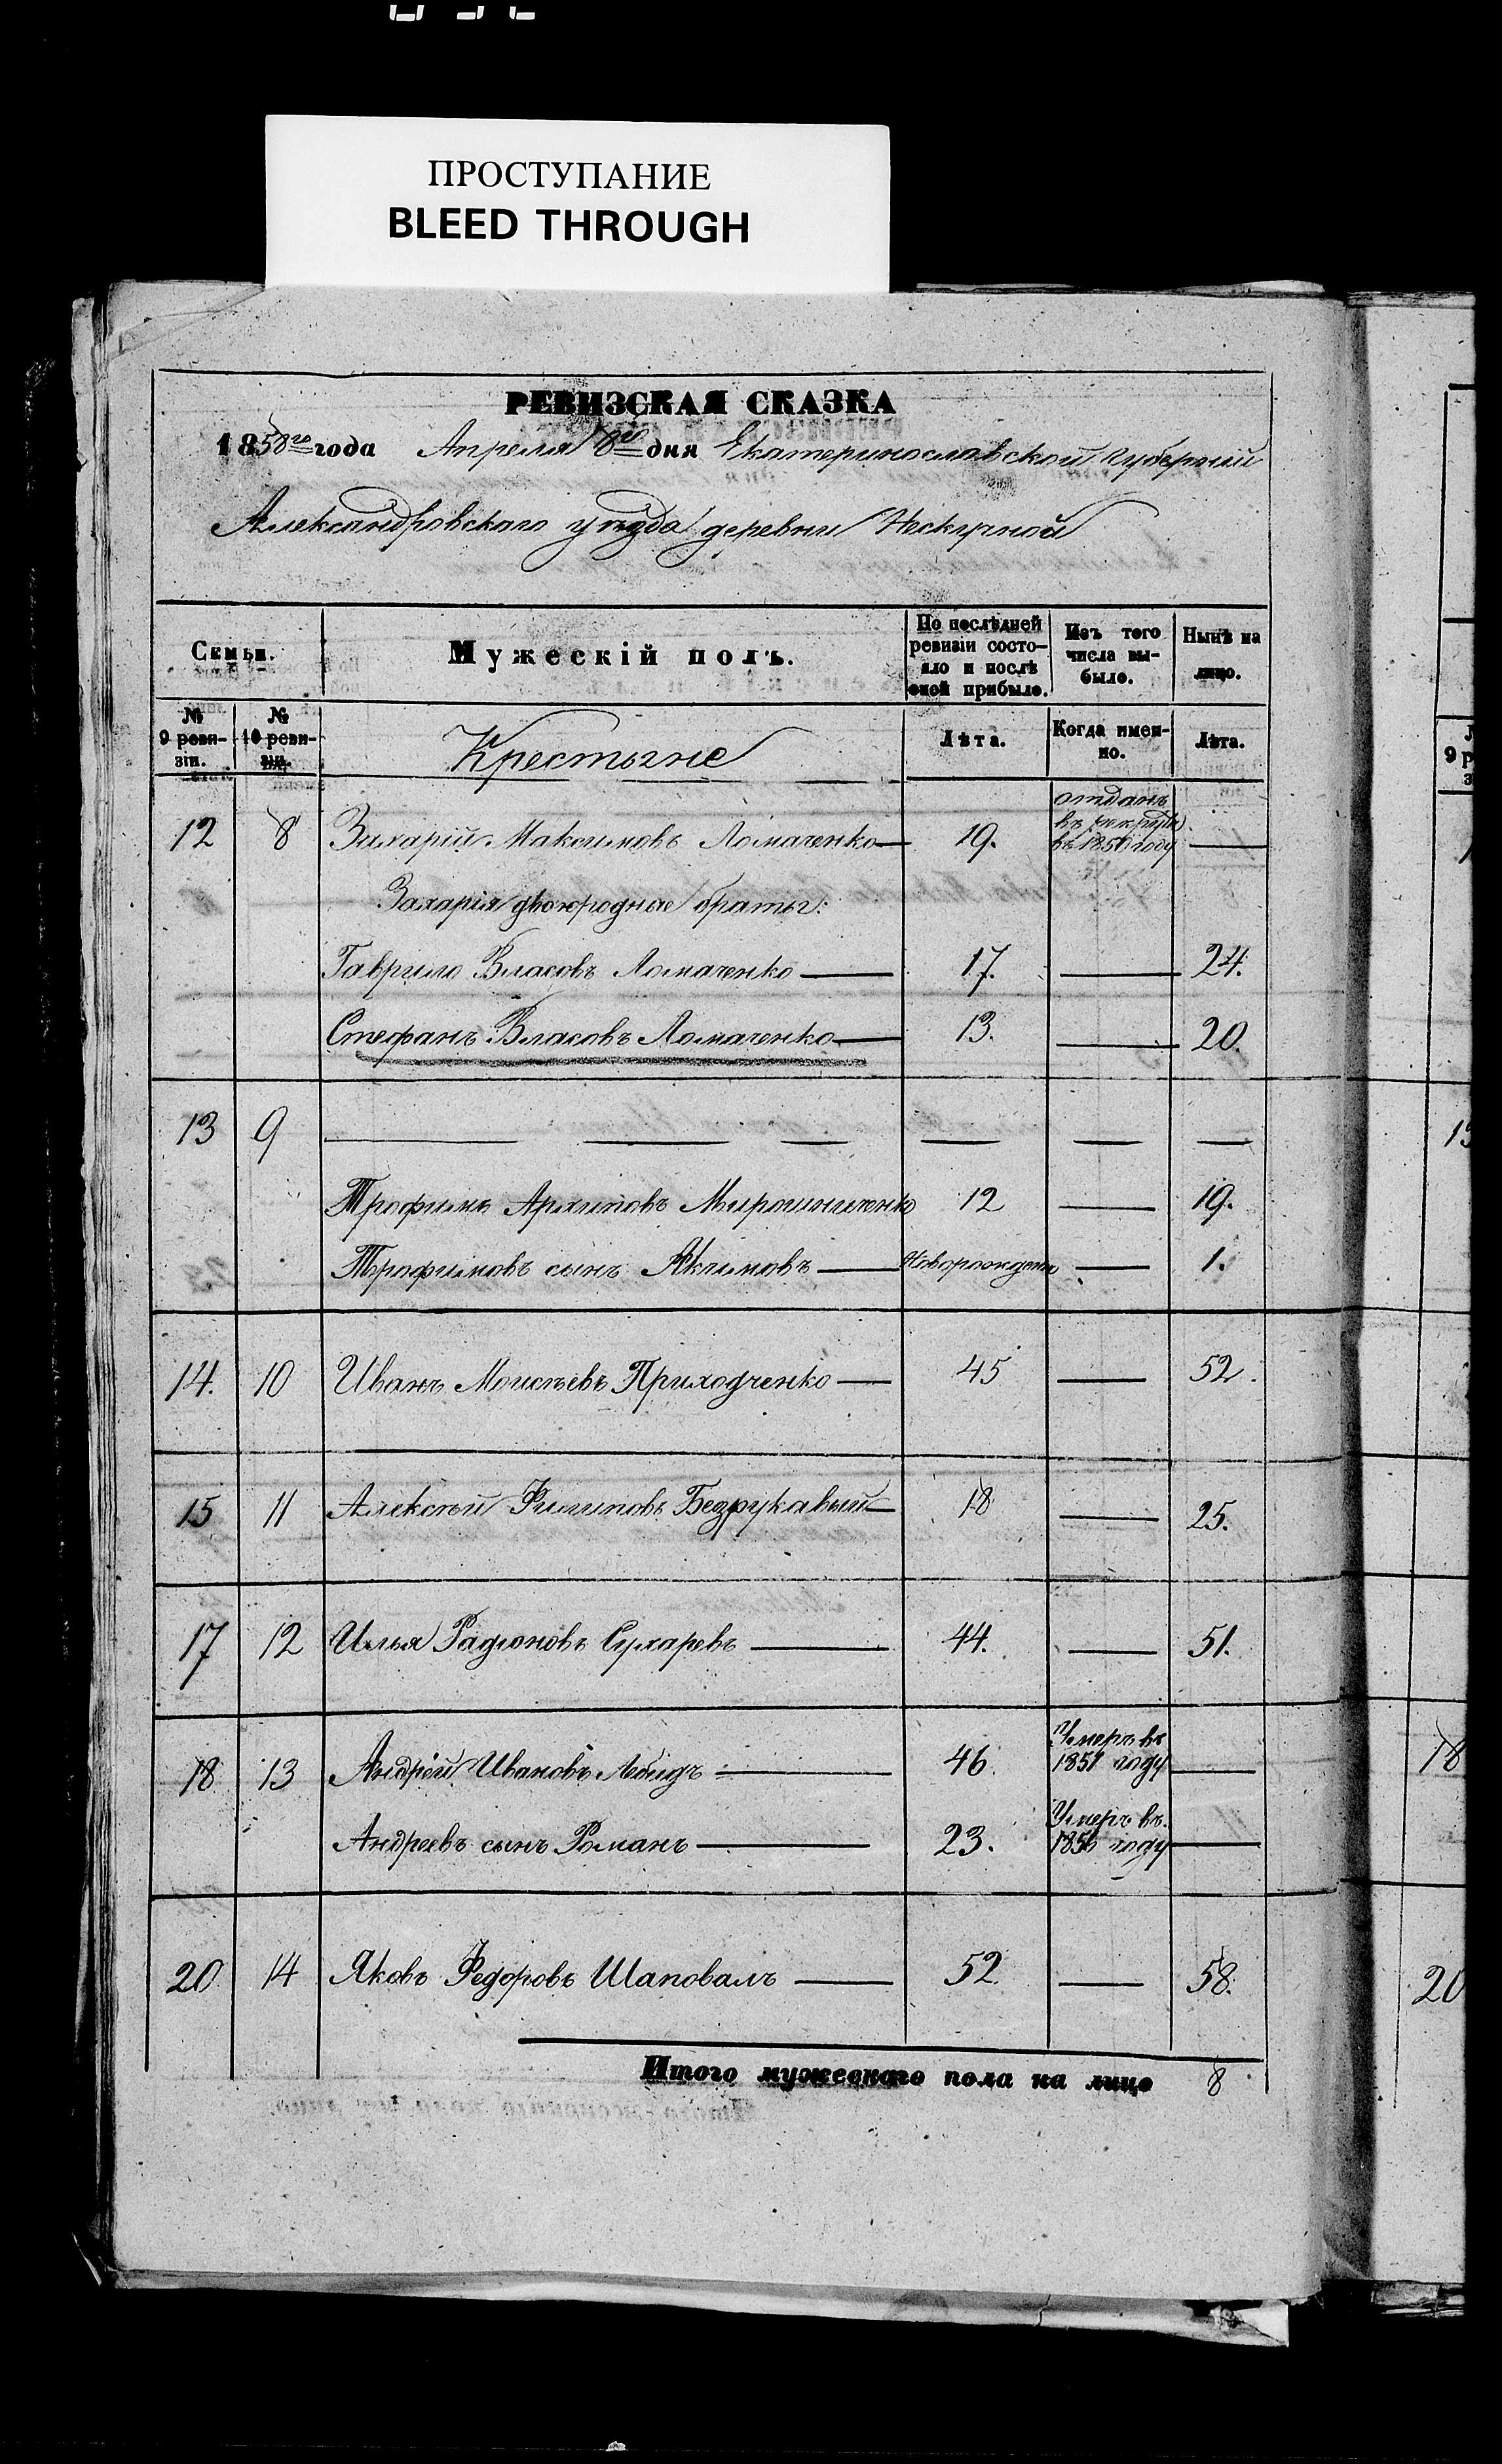 ПРОСТУПАНИЕ
BLEED THROUGH
РЕВИЗСКАЯ СКАЗКА
1858го года Апреля 8го дня Екатеринославской губернии
Александровскаго уѣзда деревни Нескучной
Семьи.
Мужескій полъ.
По послѣдней ревизіи состояло и послѣ оной прибыло.
Изъ того числа выбыло.
Нынѣ на лицо.
№ 9 ревизіи.
№ 10 ревизіи.
Крестьяне
Лѣта.
Когда именно.
Лѣта.
12 8 Захарій Максимовъ Ломаченко 19. отданъ въ рекруты въ 1856 году
Захарія двоюродные братья:
Гаврило Власовъ Ломаченко 17. 24.
Стефанъ Власовъ Ломаченко 13. 20.
13 9
Трофимъ Архиповъ Мирошниченко 12 19.
Трофимовъ сынъ Акимовъ Новорожденъ 1.
14. 10 Иванъ Моисѣевъ Приходченко 45 52.
15 11 Алексѣй Филиповъ Безрукавый 18 25.
17 12 Илья Радіоновъ Сухаревъ 44. 51.
18 13 Андрѣй Ивановъ Лебидъ 46. Умеръ въ 1857 году
Андреевъ сынъ Романъ 23. Умеръ въ 1856 году
20 14 Яковъ Федоровъ Шаповалъ 52. 58.
Итого мужескаго пола на лицо 8
9
13
18
20